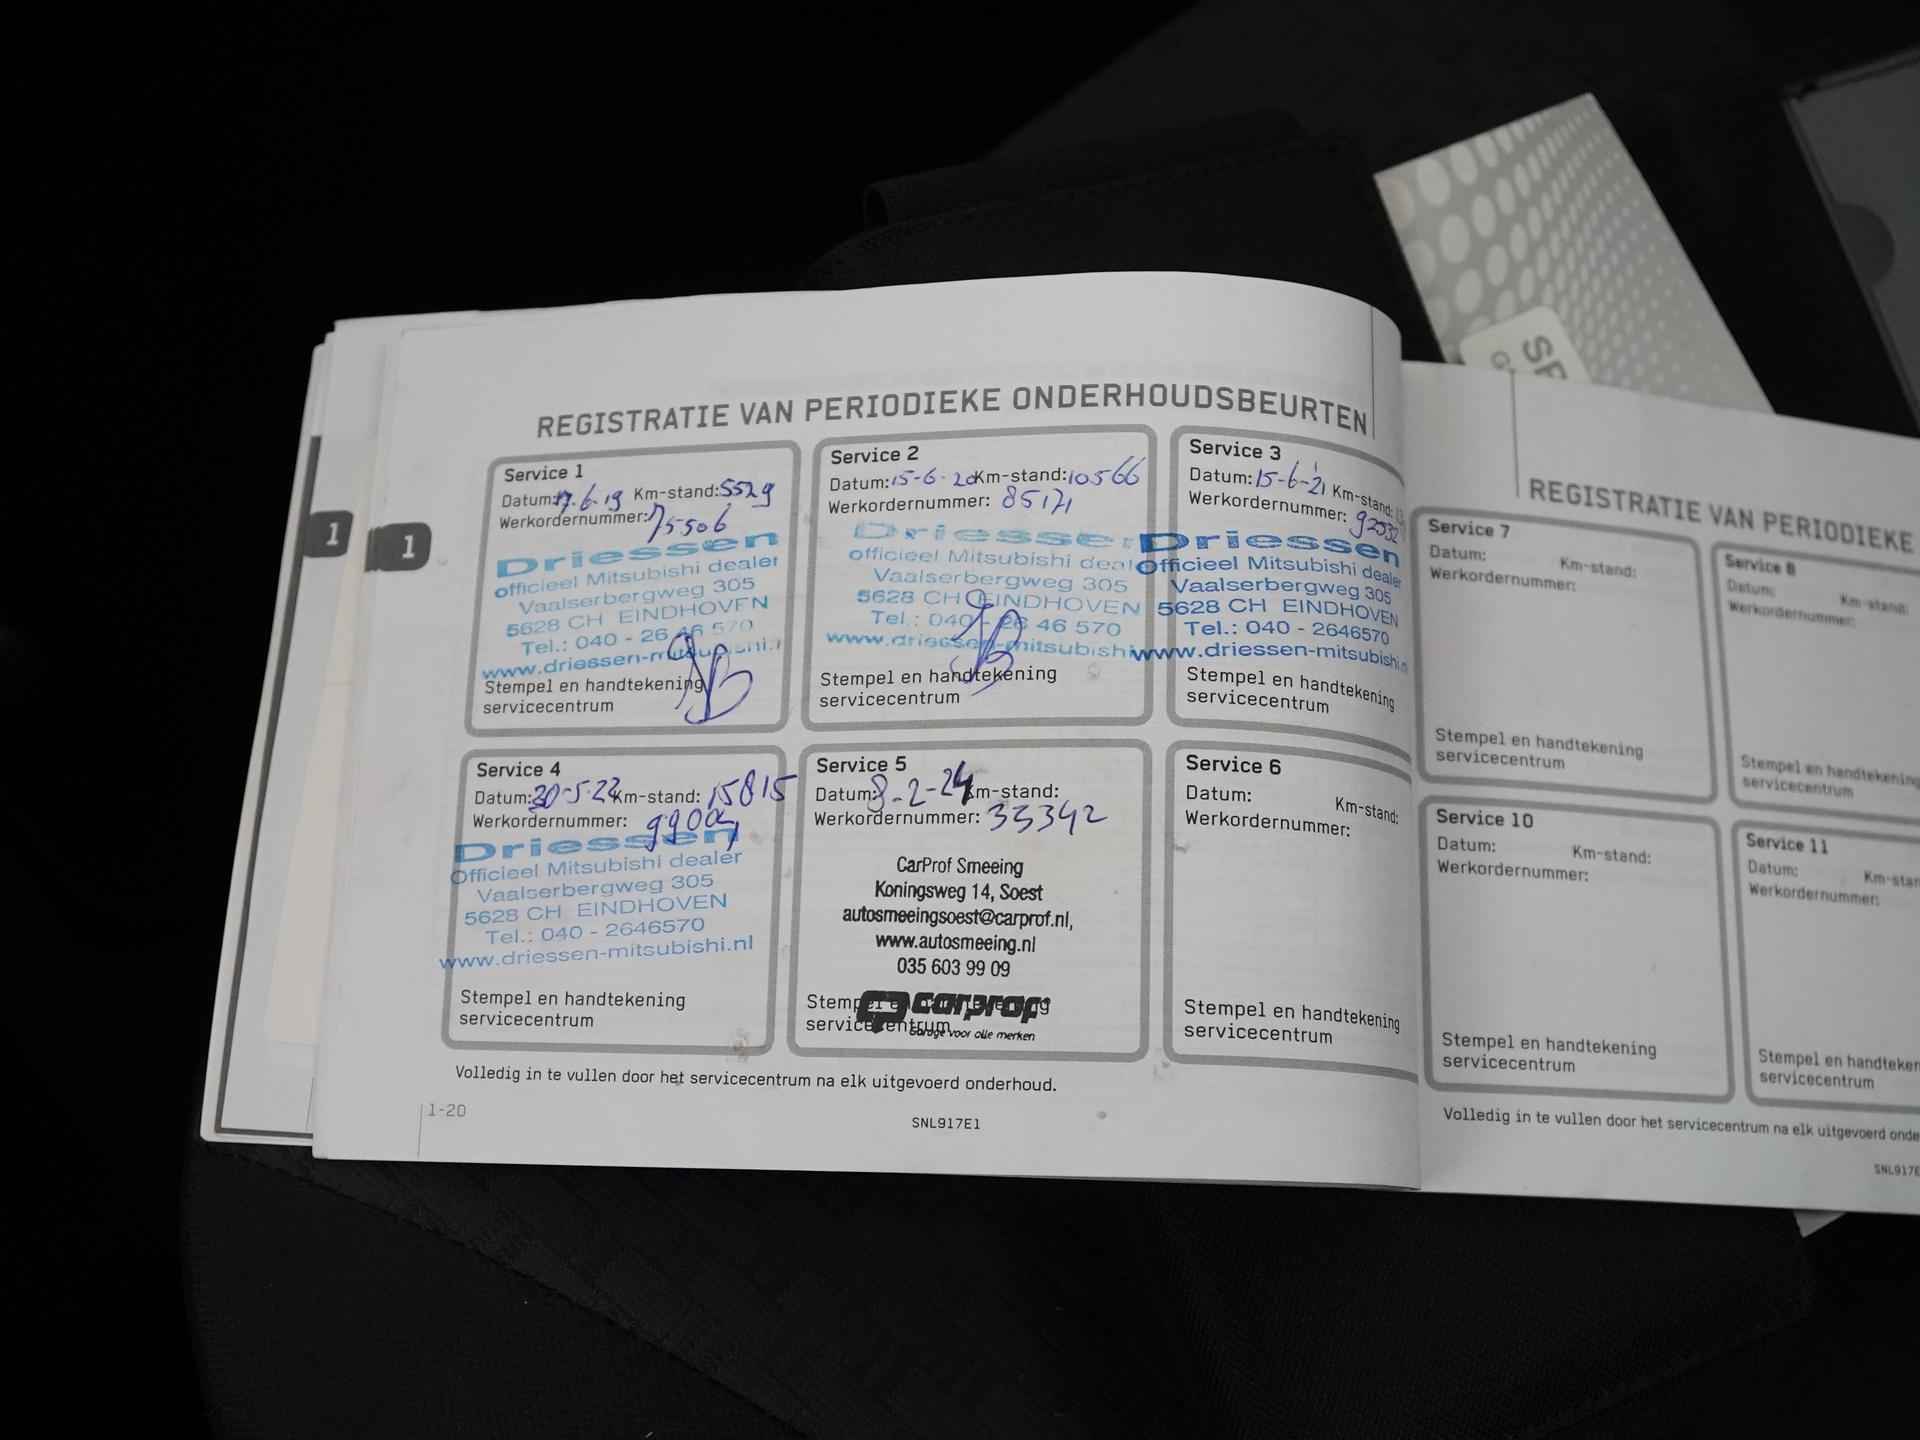 REGISTRATIE VAN PERIODIEKE ONDERHOUDSBEURTEN
Service 1
Datum: 17.6.19 Km-stand: 5529
Werkordernummer: 75506
Driessen
officieel Mitsubishi dealer
Vaalserbergweg 305
5628 CH EINDHOVEN
Tel.: 040 - 26 46 570
www.driessen-mitsubishi.n
Stempel en handtekening
servicecentrum
Service 2
Datum: 15-6-20 Km-stand: 10566
Werkordernummer: 85171
Driesse
officieel Mitsubishi deal
Vaalserbergweg 305
5628 CH EINDHOVEN
Tel.: 040 - 26 46 570
www.driessen-mitsubishi
Stempel en handtekening
servicecentrum
Service 3
Datum: 15-6-21 Km-stand:
Werkordernummer: 92032
Driessen
Officieel Mitsubishi dealer
Vaalserbergweg 305
5628 CH EINDHOVEN
Tel.: 040 - 2646570
www.driessen-mitsubishi.n
Stempel en handtekening
servicecentrum
Service 4
Datum: 30-5-22 Km-stand: 15815
Werkordernummer:
Driessen
Officieel Mitsubishi dealer
Vaalserbergweg 305
5628 CH EINDHOVEN
Tel.: 040 - 2646570
www.driessen-mitsubishi.nl
Stempel en handtekening
servicecentrum
Service 5
Datum: 8-2-24 Km-stand:
Werkordernummer: 33342
CarProf Smeeing
Koningsweg 14, Soest
autosmeeingsoest@carprof.nl,
www.autosmeeing.nl
035 603 99 09
Stempel en handtekening
servicecentrum
carprof
Garage voor alle merken
Service 6
Datum: Km-stand:
Werkordernummer:
Stempel en handtekening
servicecentrum
Volledig in te vullen door het servicecentrum na elk uitgevoerd onderhoud.
1-20
SNL917E1
1
1
REGISTRATIE VAN PERIODIEKE
Service 7
Datum: Km-stand:
Werkordernummer:
Stempel en handtekening
servicecentrum
Service 8
Datum: Km-stand:
Werkordernummer:
Stempel en handtekening
servicecentrum
Service 10
Datum: Km-stand:
Werkordernummer:
Stempel en handtekening
servicecentrum
Service 11
Datum: Km-stan
Werkordernummer:
Stempel en handteken
servicecentrum
Volledig in te vullen door het servicecentrum na elk uitgevoerd onde
SNL917E